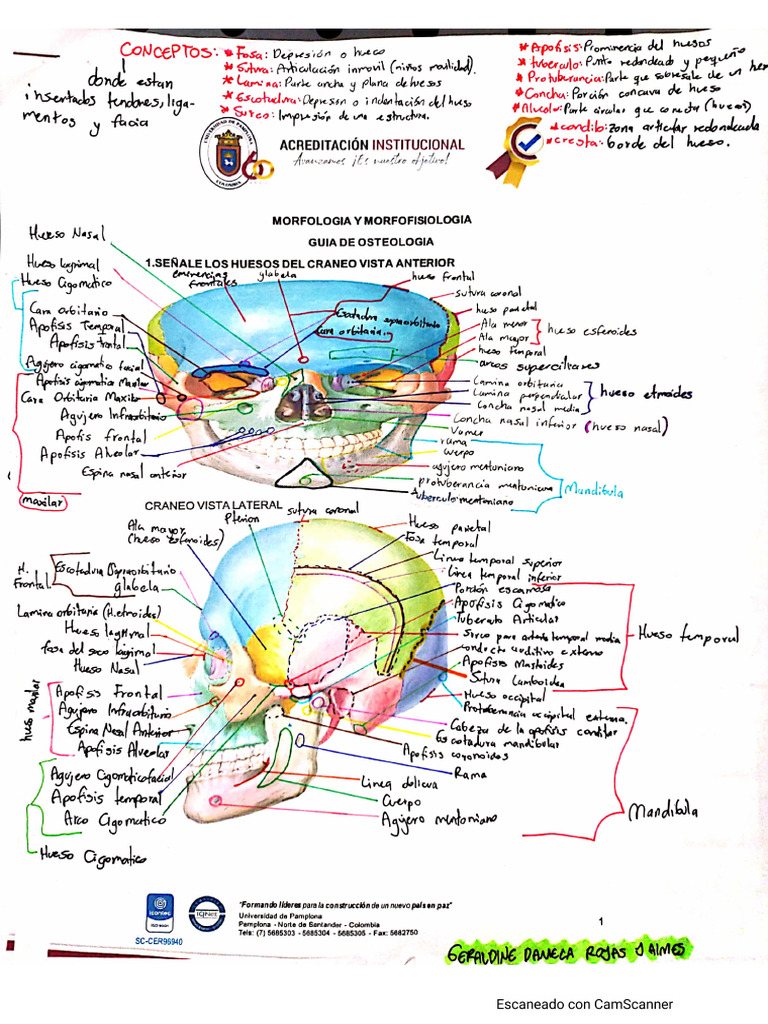 CONCEPTOS: * Fosa: Depresión o hueco
* Sutura: Articulación inmovil (niños movilidad).
* Lamina: Parte ancha y plana de huesos
* Escotadura: Depresion o indentación del hueso
* Surco: Impresión de una estructura.
donde estan
insertados tendones, liga-
mentos y facia
* Apofisis: Prominencia del huesos
* tuberculo: Punto redondeado y pequeño
* Protuberancia: Parte que sobresale de un
* Concha: Porción concava de hueso
* Alveolo: Parte circular que conecta (huesos)
* condilo: zona articular redondeada
* cresta: borde del hueso.
UNIVERSIDAD DE PAMPLONA
COLOMBIA
60
ACREDITACIÓN INSTITUCIONAL
Avanzamos ¡Es nuestro objetivo!
MORFOLOGIA Y MORFOFISIOLOGIA
GUIA DE OSTEOLOGIA
1.SEÑALE LOS HUESOS DEL CRANEO VISTA ANTERIOR
Hueso Nasal
Hueso lagrimal
Hueso Cigomatico
Cara orbitario
Apofisis Temporal
Apofisis frontal
Agujero cigomatico facial
Apofisis cigomatica Maxilar
Cara Orbitaria Maxilar
Agujero Infraorbitario
Apofis frontal
Apofisis Alveolar
Espina nasal anterior
maxilar
eminencias
frontales
glabela
hueso frontal
Escotadura supraorbitario
Cara orbitaria.
sutura coronal
hueso parietal
Ala menor
Ala mayor
hueso esfenoides
hueso temporal
arcos superciliares
Lamina orbitaria
Lamina perpendicular
Concha nasal media
hueso etmoides
Concha nasal inferior (hueso nasal)
Vomer
rama
cuerpo
agujero mentoniano
protuberancia mentoniana
tuberculo mentoniano
Mandibula
CRANEO VISTA LATERAL
Pterion
sutura coronal
Ala mayor
(hueso esfenoides)
H.
Frontal
Escotadura Supraorbitario
glabela
Lamina orbitaria (H.etmoides)
Hueso lagrimal
fosa del saco lagrimal
Hueso Nasal
hueso maxilar
Apofisis Frontal
Agujero Infraorbitario
Espina Nasal Anterior
Apofisis Alveolar
Agujero Cigomaticofacial
Apofisis temporal
Arco Cigomatico
Hueso Cigomatico
Hueso parietal
Fosa temporal
Linea temporal superior
Linea temporal inferior
Porción escamosa
Apofisis Cigomatica
Tuberculo Articular
Surco para arteria temporal media
conducto auditivo externo
Apofisis Mastoides
Sutura Lamboidea
Hueso temporal
Hueso occipital
Protuberancia occipital externa.
Cabeza de la apofisis condilar
Escotadura mandibular
Apofisis coronoides
Rama
Linea oblicua
Cuerpo
Agujero mentoniano
Mandibula
icontec
ISO 9001
SC-CER96940
IQNET
"Formando líderes para la construcción de un nuevo país en paz"
Universidad de Pamplona
Pamplona - Norte de Santander - Colombia
Tels: (7) 5685303 - 5685304 - 5685305 - Fax: 5682750
1
GERALDINE DANIELA ROJAS JAIMES
Escaneado con CamScanner